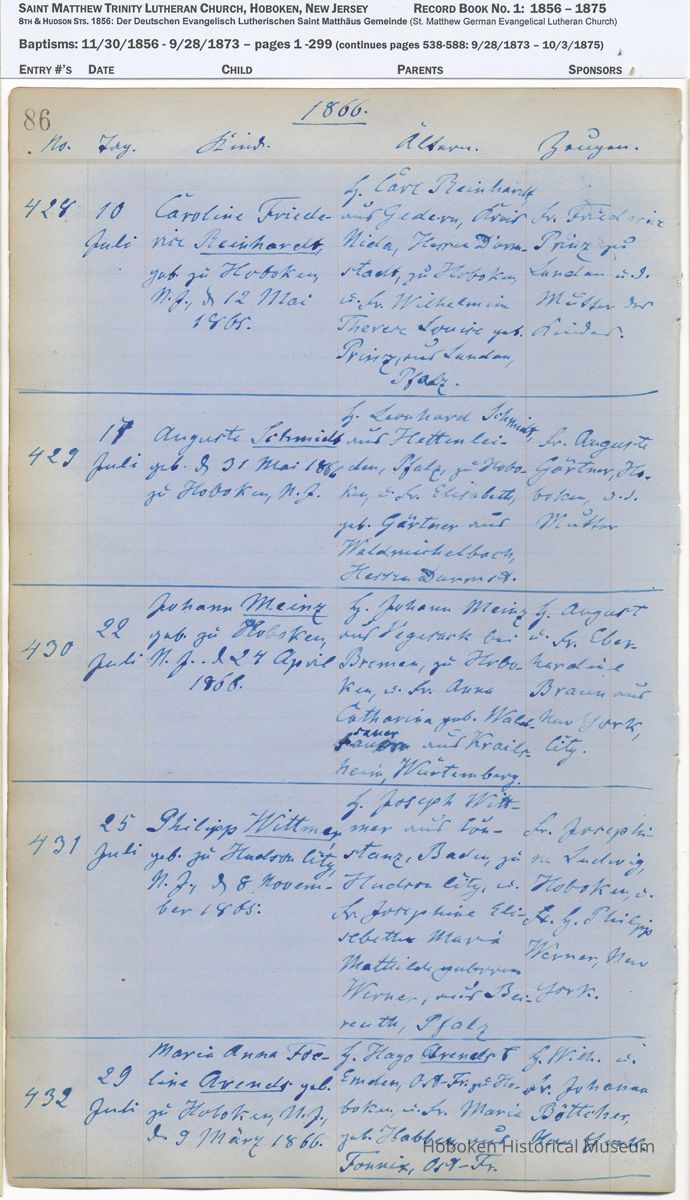 SAINT MATTHEW TRINITY LUTHERAN CHURCH, HOBOKEN, NEW JERSEY RECORD BOOK NO. 1: 1856 – 1875
8TH & HUDSON STS. 1856: Der Deutschen Evangelisch Lutherischen Saint Matthäus Gemeinde (St. Matthew German Evangelical Lutheran Church)
Baptisms: 11/30/1856 - 9/28/1873 – pages 1 -299 (continues pages 538-588: 9/28/1873 – 10/3/1875)
ENTRY #'S DATE CHILD PARENTS SPONSORS
86
1866.
No. Tag. Kind. Ältern. Zeugen.
428
10
Juli
Caroline Friede-
rice Reinhardt,
geb. zu Hoboken,
N.J., d. 12 Mai
1865.
H. Carl Reinhardt
aus Gedern, Kreis
Nida, Hessen Darm-
stadt, zu Hoboken,
u. Fr. Wilhelmine
Therese Louise geb.
Prinz, aus Landau,
Pfalz.
Fr. Friederice
Prinz zu
Landau u. d.
Mutter des
Kindes.
429
17
Juli
Auguste Schmidt
geb. d. 31 Mai 1866
zu Hoboken, N.J.
H. Leonhard Schmidt,
aus Hettenlei-
den, Pfalz, zu Hobo-
ken, u. Fr. Elisabeth,
geb. Gärtner aus
Waldmichelbach,
Hessen Darmst.
Fr. Auguste
Gärtner, Ho-
boken, u. d.
Mutter
430
22
Juli
Johann Meinz
geb. zu Hoboken,
N.J., d. 24 April
1866.
H. Johann Meinz
aus Vegesack bei
Bremen, zu Hobo-
ken, u. Fr. Anna
Catharina geb. Wald-
sauer
aus Krails-
heim, Würtemberg.
H. August
u. Fr. Eber-
hardine
Braun aus
New York,
City.
431
25
Juli
Philipp Wittmer,
geb. zu Hudson City,
N.J., d. 8 Novem-
ber 1865.
H. Joseph Witt-
mer aus Con-
stanz, Baden, zu
Hudson City, u.
Fr. Josephine Eli-
sabetha Maria
Mathilde geborenen
Werner, aus Bei-
reuth, Pfalz
Fr. Josephi-
ne Ludwig,
Hoboken, u.
H. Philipp
Werner, New
York.
432
29
Juli
Maria Anna Foe-
line Arends geb.
zu Hoboken, N.J.,
d. 9 März 1866.
H. Hayo Arends
Emden, Ost-Fr. zu Ho-
boken, u. Fr. Maria
geb. Habben, aus
Ost-Fr.
H. Wilh. u.
Fr. Johanna
Böttcher,
New York.
Hoboken Historical Museum